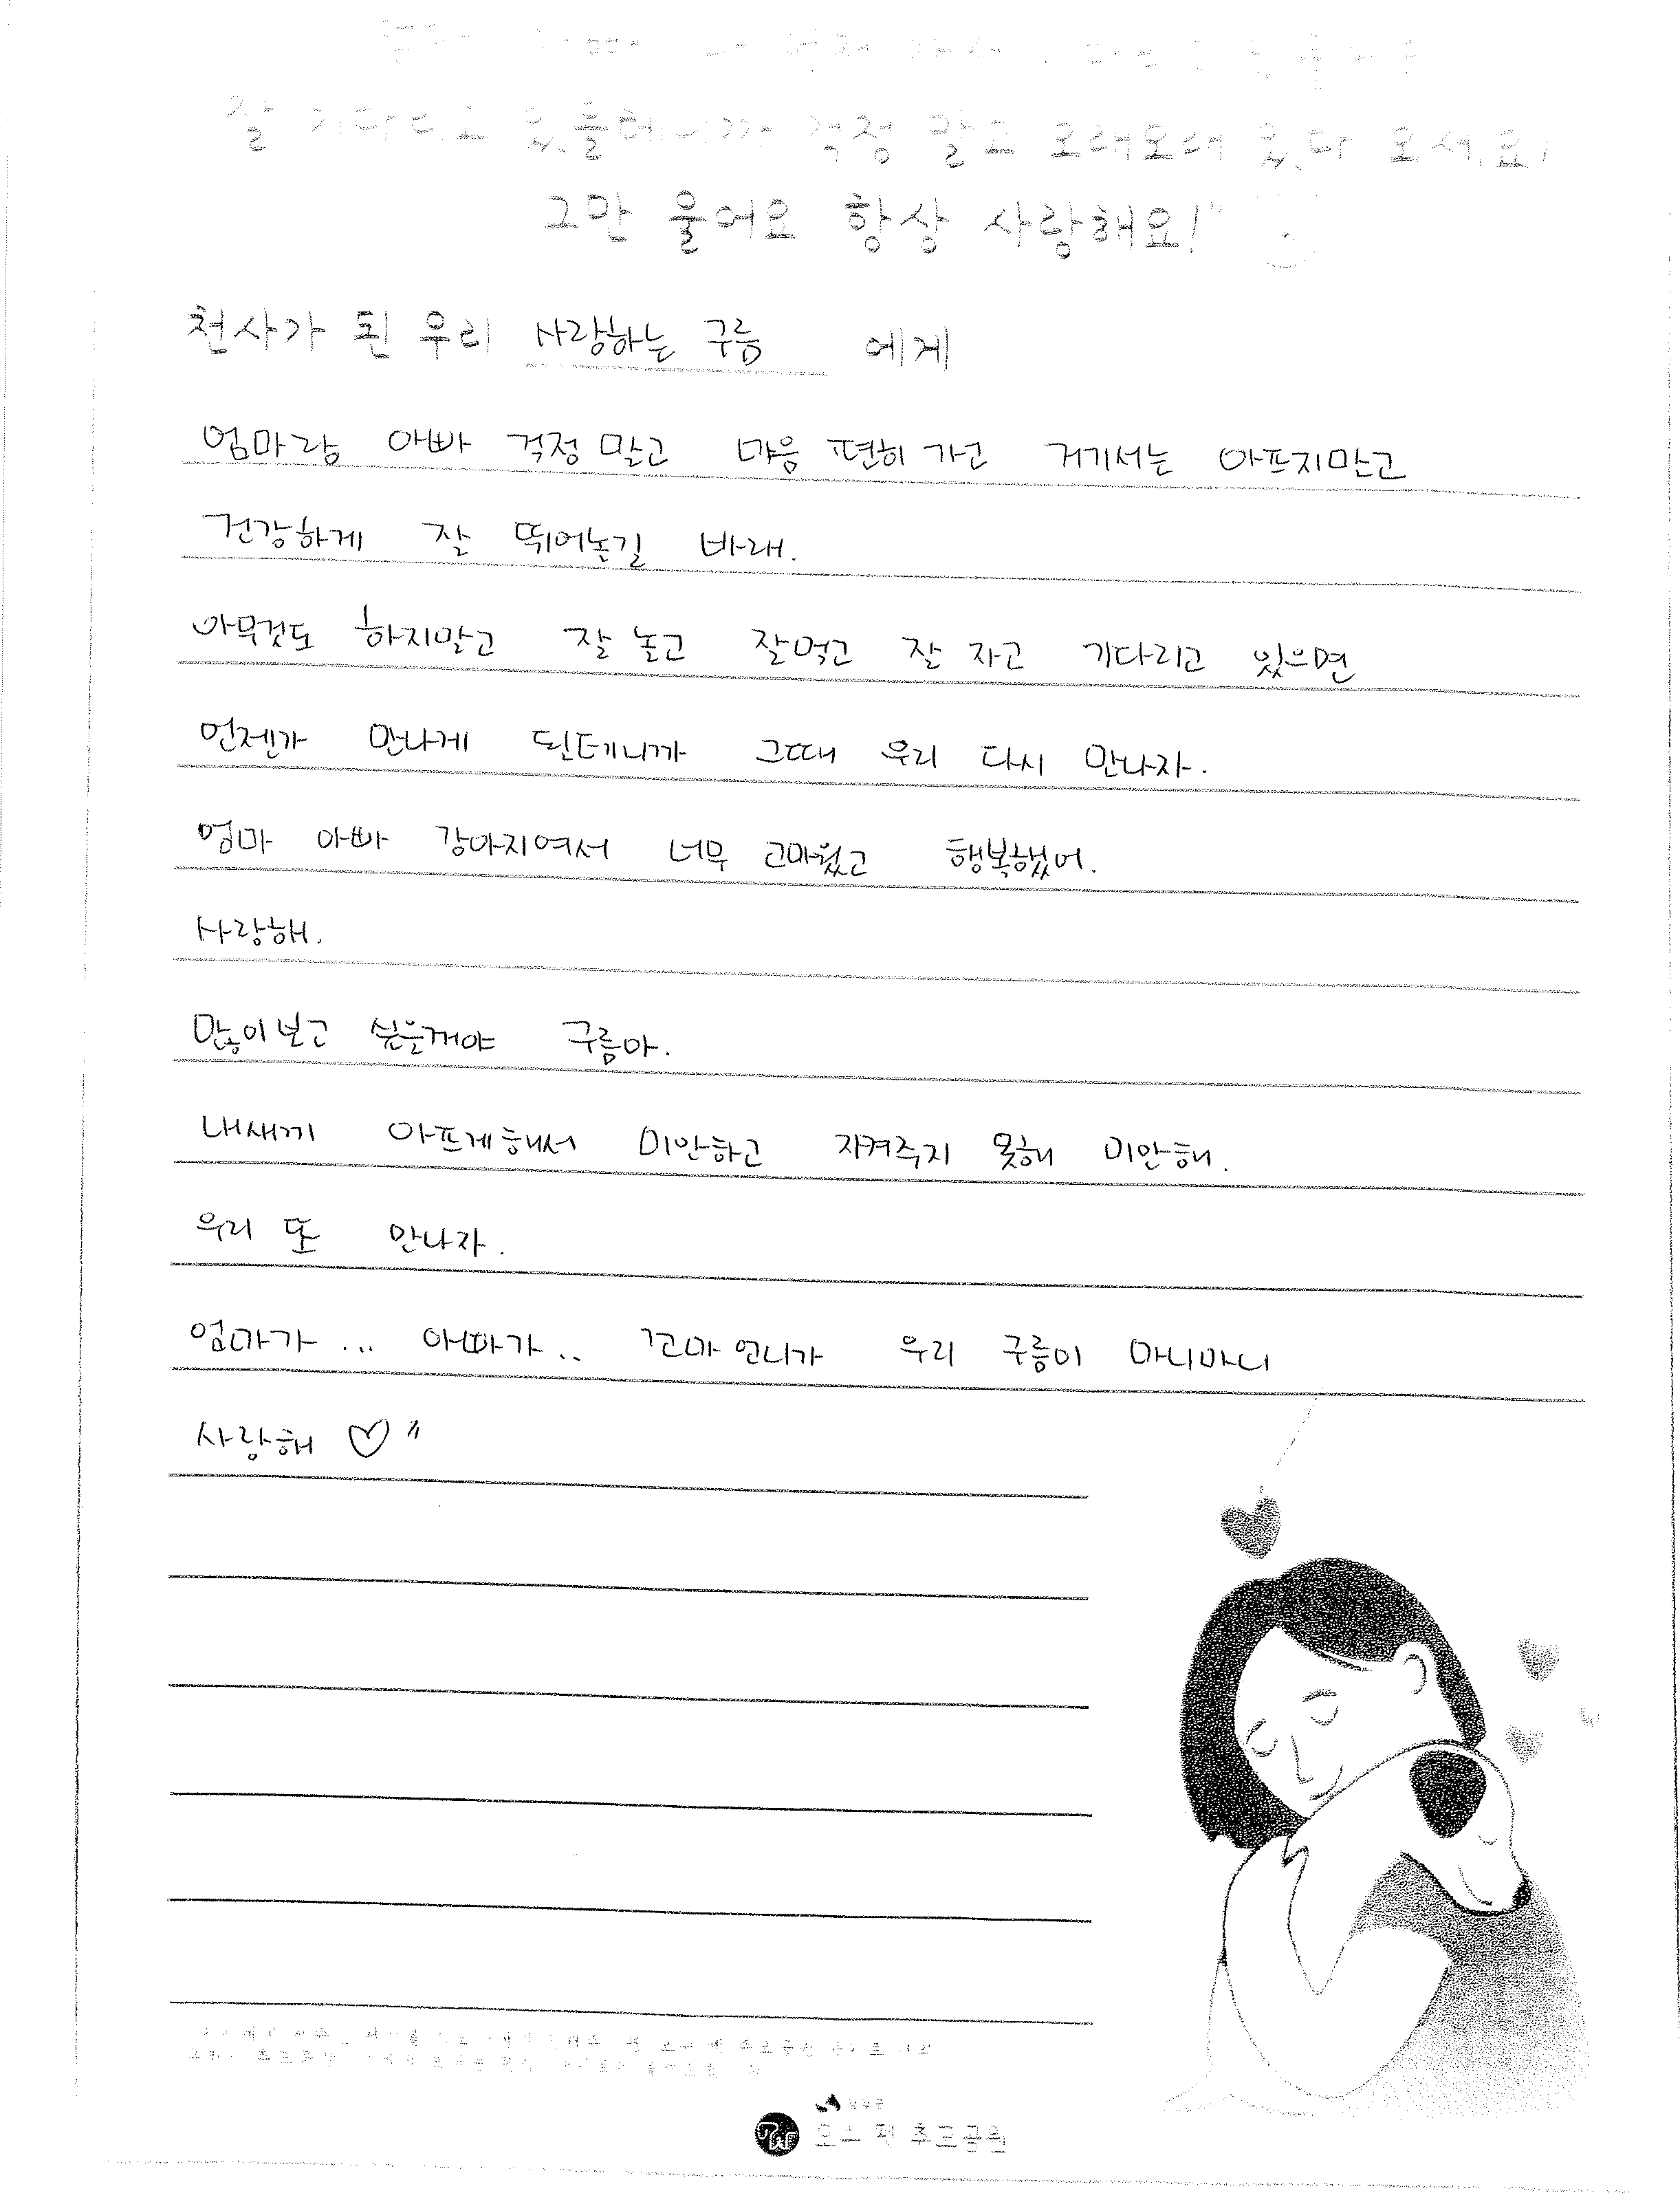 잘 기다리고 있을테니까 걱정 말고 오래오래 있다 오세요!
그만 울어요 항상 사랑해요!"
천사가 된 우리 사랑하는 구름 에게
엄마랑 아빠 걱정 말고 마음 편히 가고 거기서는 아프지만고
건강하게 잘 뛰어논길 바래.
아무것도 하지말고 잘 놀고 잘먹고 잘 자고 기다리고 있으면
언젠가 만나게 될테니까 그때 우리 다시 만나자.
엄마 아빠 강아지여서 너무 고마웠고 행복했어.
사랑해.
많이보고 싶을꺼야 구름아.
내새끼 아프게해서 미안하고 지켜주지 못해 미안해.
우리 또 만나자.
엄마가... 아빠가.. 꼬마언니가 우리 구름이 마니마니
사랑해 ♡"
펫 추모공원